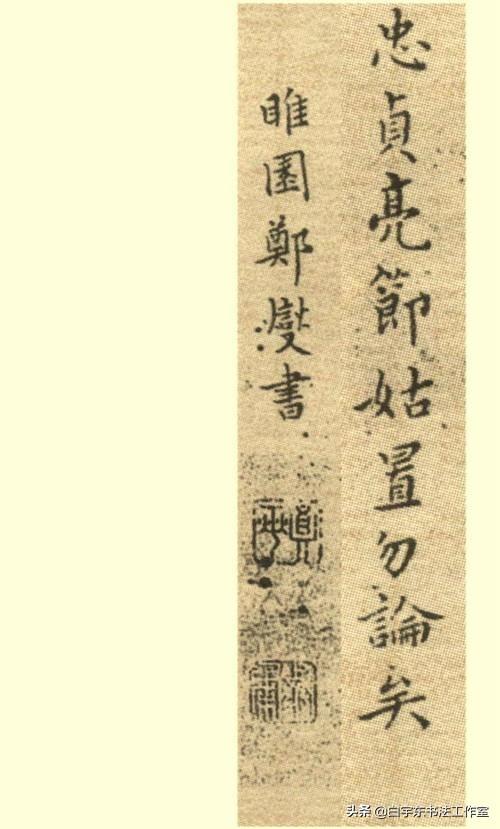 忠貞亮節姑置勿論矣
睢園鄭燮書
头条 @白宇东书法工作室